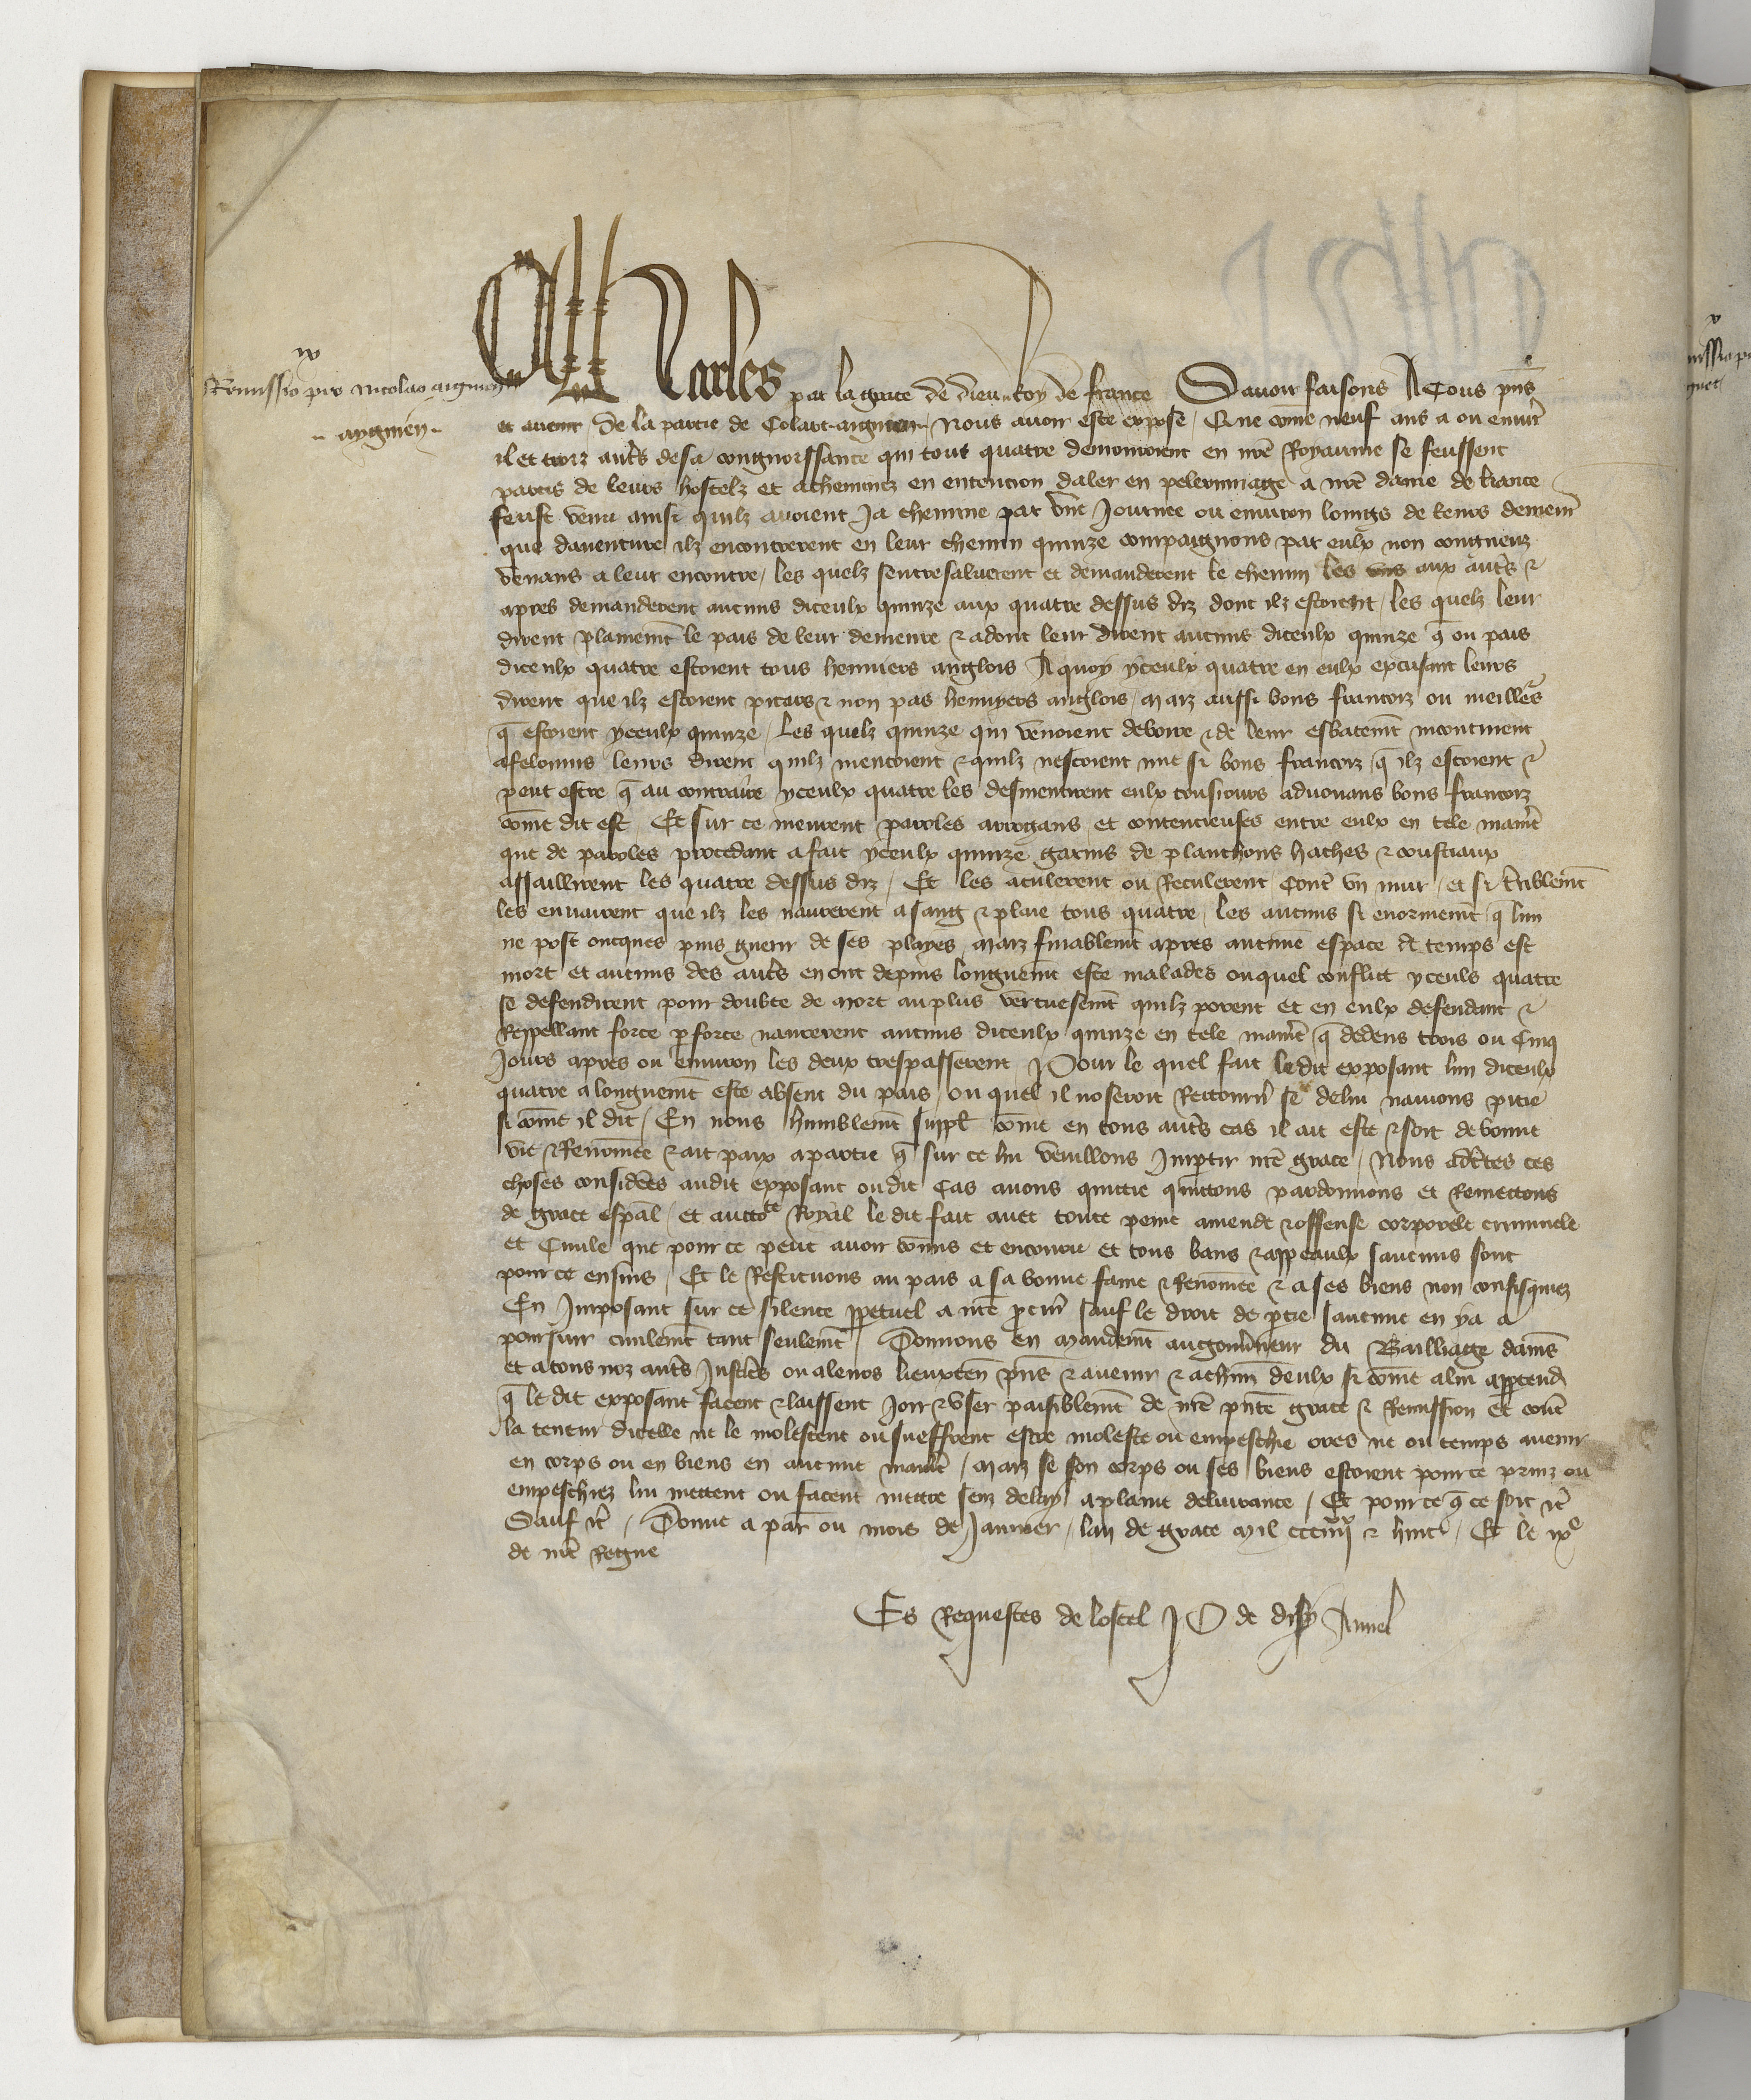 ix
Remissio pro Nicolao aigmen
aygmen
Charles par la grace de dieu Roy de france Savoir faisons A Tous pñs
et avenir / De la partie de Colart aigmen / Nous avoir este expose / Que come neuf ans a ou envir̃
il et troiz aut̃s de sa congnoissance qui tous quatre demouroient en nr̃e Royaume se feussent
partis de leurs hostelz et acheminez en entencion daler en pelerinnage a nr̃e dame de liance
feust venu ainsi quilz avoient Ja chemine par une Journee ou environ loings de leurs demeur̃
que daventure ilz encontrerent en leur chemin quinze compaignons par eulx non congneuz
venans a leur encontre / les quelz sentresaluerent et demanderent le chemin les uns aux aut̃s &
apres demanderent aucuns diceulx quinze aux quatre dessus diz dont ilz estoient / les quelz leur
dirent plainemẽt le pais de leur demeure & adont leur dirent aucuns diceulx quinze q̃ ou pais
diceulx quatre estoient tous hennuiers anglois A quoy yceulx quatre en eulx excusant leurs
dirent que ilz estoient picars & non pas hennyers anglois / Maiz aussi bons francoiz ou meille᷑s
q̃ estoient yceulx quinze / Les quelz quinze qui venoient de boire & de leur esbatemẽt incontinent
afelonnis leurs dirent quilz mentoient & quilz nestoient mie si bons francoiz q̃ ilz estoient &
peut estre q̃ au contraire yceulx quatre les desmentirent eulx tousiours advouans bons francoiz
cõme dit est / Et sur ce meurent paroles arrogans et contencieuses entre eulx en tele manie᷑
que de paroles procedant a fait yceulx quinze garnis de planchons haches & coustiaux
assaillirent les quatre dessus diz / Et les aculerent ou Reculerent Cont̃ un mur / et si t̃riblemẽt
les envairent que ilz les navrerent a sang & plaie tous quatre / les aucuns si enormemẽt q̃ lun
ne post oncques puis guerir de ses playes Maiz finablemẽt apres aucune espace de temps est
mort et aucuns des aut̃s en ont depuis longuemẽt este malades ouquel conflict yceuls quatre
se defendirent pour doubte de mort au plus vertuesemẽt quilz porent et en eulx defendant &
Reppellant force p̱ force navrerent aucuns diceulx quinze en tele manie᷑ q̃ dedens trois ou Cinq
Jours apres ou environ les deux trespasserent / Pour le quel fait le dit exposant lun diceulx
quatre a longuemẽt este absent du pais / ou quel il noseroit Retourn̄ se de lui navions pitie
si cõme il dit / En nous humblemẽt suppl̃ cõme en tous aut̃s cas il ait este & soit de bonne
vie & Renõmee & ait paix a partie q̃ sur ce lui veuillons Imp̱tir nr̃e grace / Nous adc̃tes ces
choses considẽes audit exposant oudit Cas avons quittie quittons pardonnons et Remettons
de grace esp̃al / et auctote Royal le dit fait avec toute peine amende & offense corporele criminele
et Civile que pour ce peut avoir cõmis et encouru et tous bans & appeaulx saucuns sont
pour ce ensuis / Et le Restituons au pais a sa bonne fame & Renõmee & a ses biens non confisquiez
En Imposant sur ce silence p̱petuel a nr̃e p̱cur̃ Sauf le droit de p̱tie saucune en y a a
poursuir civilemẽt tant seulemẽt / Donnons en mandemẽt au gouv̄neur du Bailliage damiẽs
et a tous noz aut̃s Justic̃s ou a leurs lieuxten̄ pñs & avenir & a chũn deulx si cõme a lui app̱tend᷑
q̃ le dit exposant facent & laissent Joir & User paisiblemẽt de nr̃e pñte grace & Remission et cont̃
la teneur dicelle ne le molestent ou sueffrent estre moleste ou empeschie ores ne ou temps avenir
en corps ou en biens en aucune manie᷑ / Maiz se son corps ou ses biens estoient pour ce prinz ou
empeschiez lui mettent ou facent mettre senz delay a plaine delivrance / Et pour ce q̃ ce soit ec̃
Sauf ec̃ / Donne a par̃ ou mois de Janvier / lan de grace Mil CCCiiiixx & huit / Et le ixe
de nr̃e Regne
Es Requestes de lostel P de disy Annel